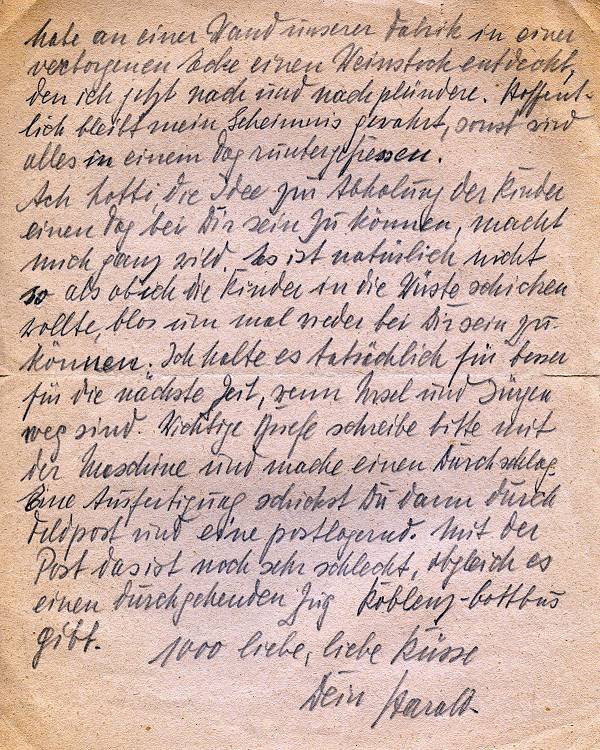 habe an einer Wand unserer Fabrik in einer
verborgenen Ecke einen Weinstock entdeckt,
den ich jetzt nach und nach plündere. Hoffent-
lich bleibt mein Geheimnis gewahrt, sonst sind
alles in einem Tag runtergefressen.
Ach Lotti, die Idee zur Abholung der Kinder
einen Tag bei Dir sein zu können, macht
mich ganz wild. Es ist natürlich nicht
so als ob ich die Kinder in die Wüste schicken
wollte, blos um mal wieder bei Dir sein zu
können. Ich halte es tatsächlich für besser
für die nächste Zeit, wenn Ursel und Jürgen
weg sind. Wichtige Briefe schreibe bitte mit
der Maschine und mache einen Durchschlag.
Eine Ausfertigung schickst Du dann durch
Feldpost und eine postlagernd. Mit der
Post das ist noch sehr schlecht, obgleich es
einen durchgehenden Zug Koblenz-Cottbus
gibt.
1000 liebe, liebe Küsse
Dein Harald.